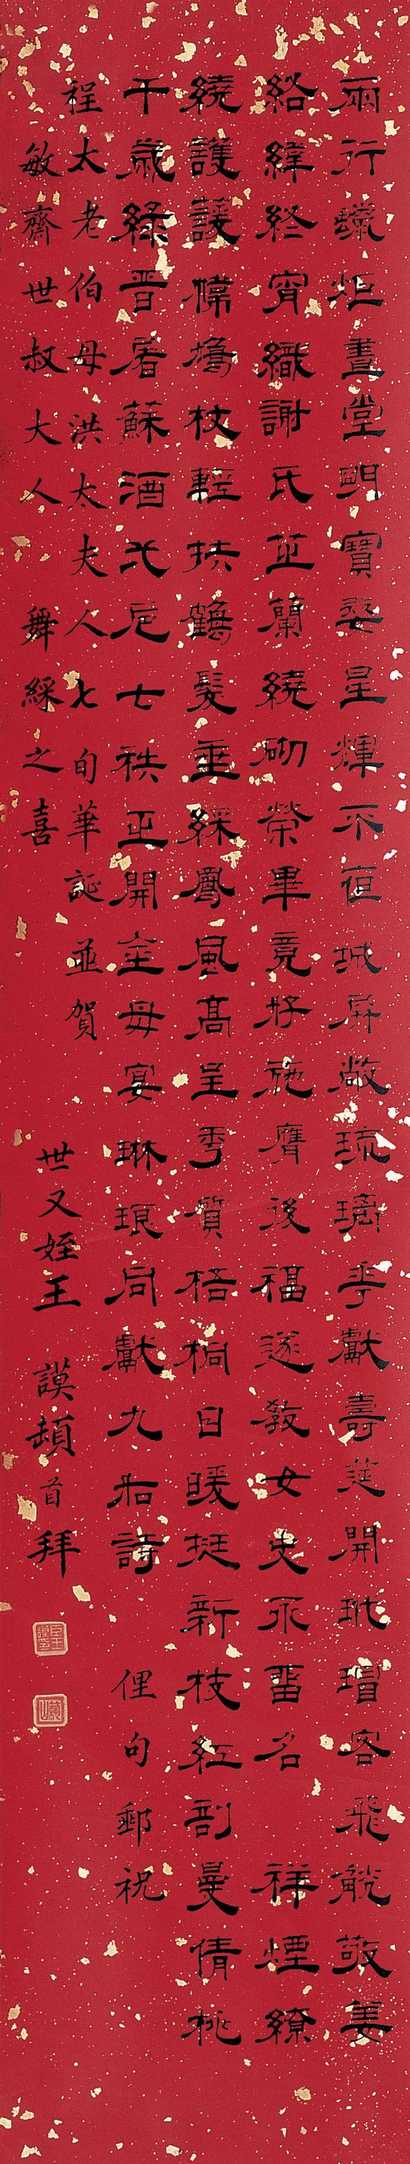 兩行蠟炬畫堂明寶婺星輝不夜城屏敞琉璃爭獻壽筵開玳瑁客飛觥敬姜
絡緯終宵織謝氏芷蘭繞砌榮畢竟好施膺後福遂教女史永留名 祥煙繚
繞護護幃鳩杖輕扶鶴髮垂綵鳳風高呈秀質梧桐日暖挺新枝紅剖曼倩桃
千歲綠晉屠蘇酒弌卮七秩正開金母宴琳琅同獻九如詩 俚句郵祝
程太老伯母洪太夫人七旬華誕並賀
敏齋世叔大人 舞綵之喜
世又姪王 謨頓首拜